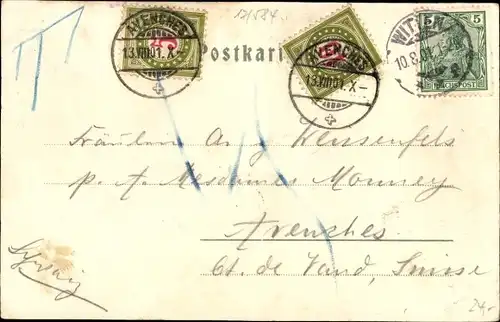 12/584
AVENCHES
13.VIII.01.X-
25
Postkar
AVENCHES
13.VIII.01.X-
WIT
10.8.01
5 5
REICHSPOST
Fräulein A. Weissenfels
p. A. Mesdames Monney
Avenches
Ct. de Vaud, Suisse
24,-